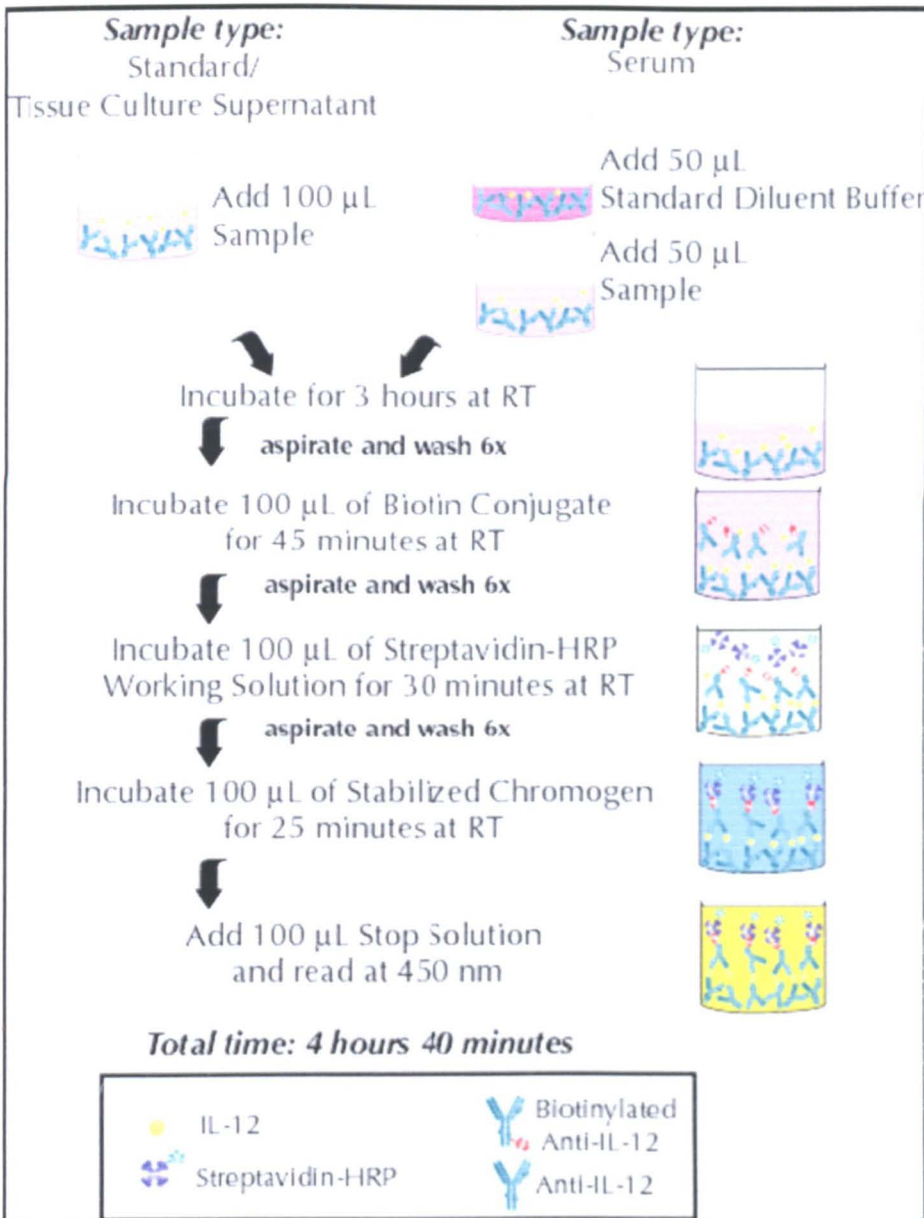 Sample type:
Standard/
Tissue Culture Supernatant
Add 100 µL
Sample
Sample type:
Serum
Add 50 µL
Standard Diluent Buffer
Add 50 µL
Sample
Incubate for 3 hours at RT
aspirate and wash 6x
Incubate 100 µL of Biotin Conjugate
for 45 minutes at RT
aspirate and wash 6x
Incubate 100 µL of Streptavidin-HRP
Working Solution for 30 minutes at RT
aspirate and wash 6x
Incubate 100 µL of Stabilized Chromogen
for 25 minutes at RT
Add 100 µL Stop Solution
and read at 450 nm
Total time: 4 hours 40 minutes
IL-12
Streptavidin-HRP
Biotinylated
Anti-IL-12
Anti-IL-12